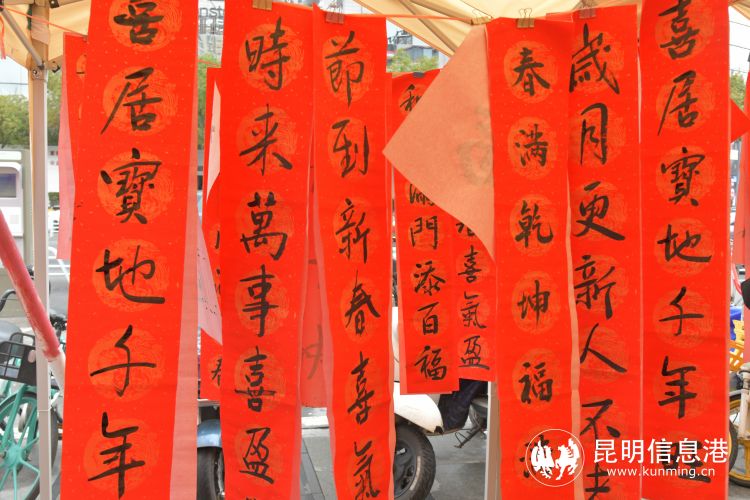 喜居寶地千年
時来萬事喜盈
節到新春喜氣
滿門添百福
喜氣盈
春滿乾坤福
歲月更新人不
喜居寶地千年
昆明信息港
www.kunming.cn